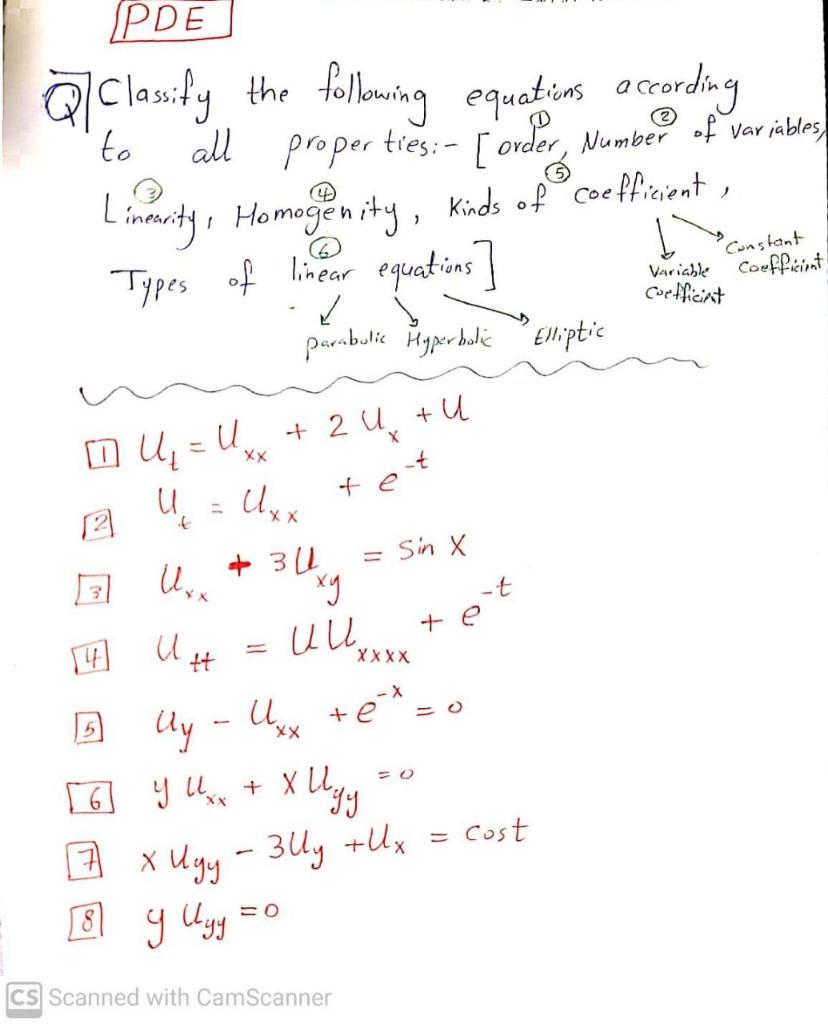 PDE
Q Classify the following equations according
to all properties:- [ order, Number of variables,
① ②
Linearity, Homogenity, Kinds of coefficient,
③ ④ ⑤
Types of linear equations]
⑥
Variable Coefficient
Constant Coefficient
parabolic Hyperbolic Elliptic
1 U_t = U_xx + 2 U_x + U
2 U_t = U_xx + e^-t
3 U_xx + 3U_xy = Sin X
4 U_tt = UU_xxxx + e^-t
5 U_y - U_xx + e^-x = 0
6 y U_xx + X U_yy = 0
7 x U_yy - 3U_y + U_x = cost
8 y U_yy = 0
CS Scanned with CamScanner